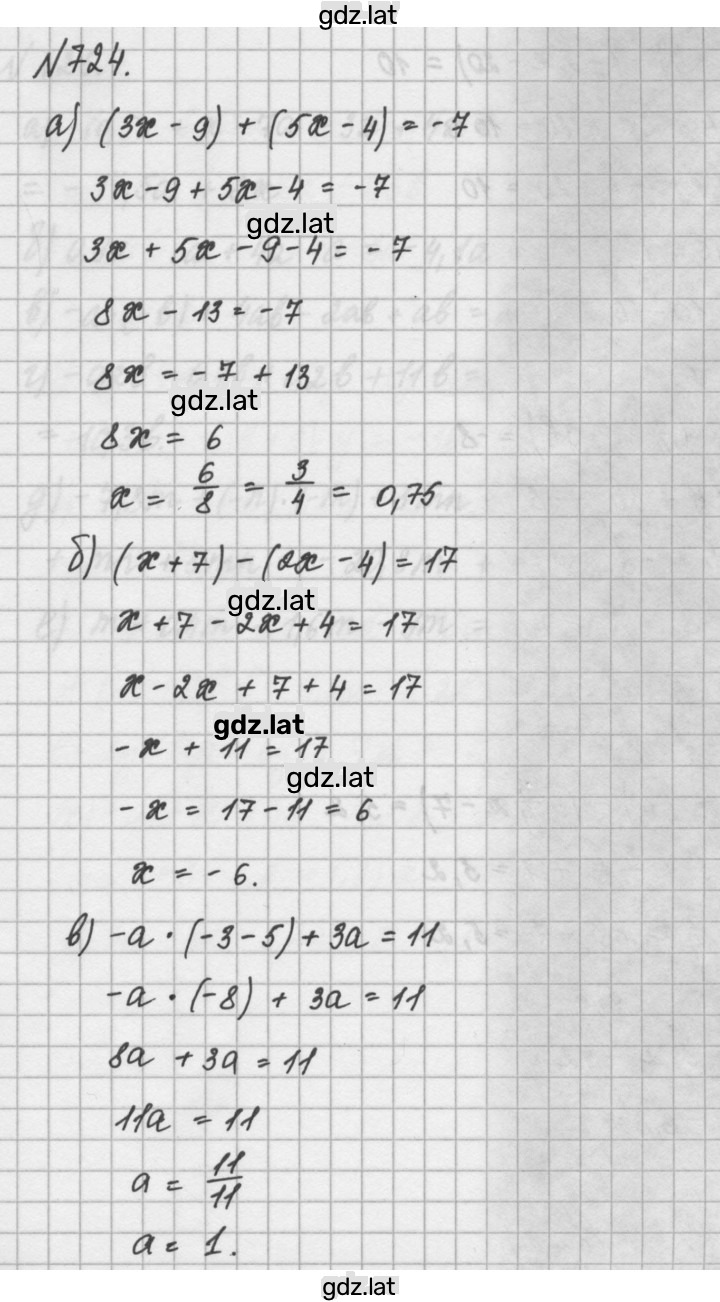 gdz.lat
№724.
а) (3x - 9) + (5x - 4) = -7
3x - 9 + 5x - 4 = -7
gdz.lat
3x + 5x - 9 - 4 = -7
8x - 13 = -7
8x = -7 + 13
gdz.lat
8x = 6
x = 6/8 = 3/4 = 0,75
б) (x + 7) - (2x - 4) = 17
gdz.lat
x + 7 - 2x + 4 = 17
x - 2x + 7 + 4 = 17
gdz.lat
-x + 11 = 17
gdz.lat
-x = 17 - 11 = 6
x = -6.
в) -a · (-3 - 5) + 3a = 11
-a · (-8) + 3a = 11
8a + 3a = 11
11a = 11
a = 11/11
a = 1.
gdz.lat